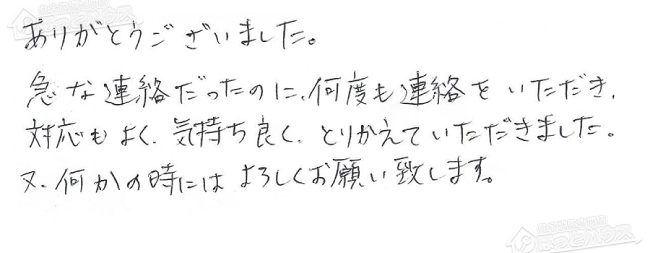 ありがとうございました。
急な連絡だったのに、何度も連絡をいただき、
対応もよく、気持ち良く、とりかえていただきました。
又、何かの時にはよろしくお願い致します。